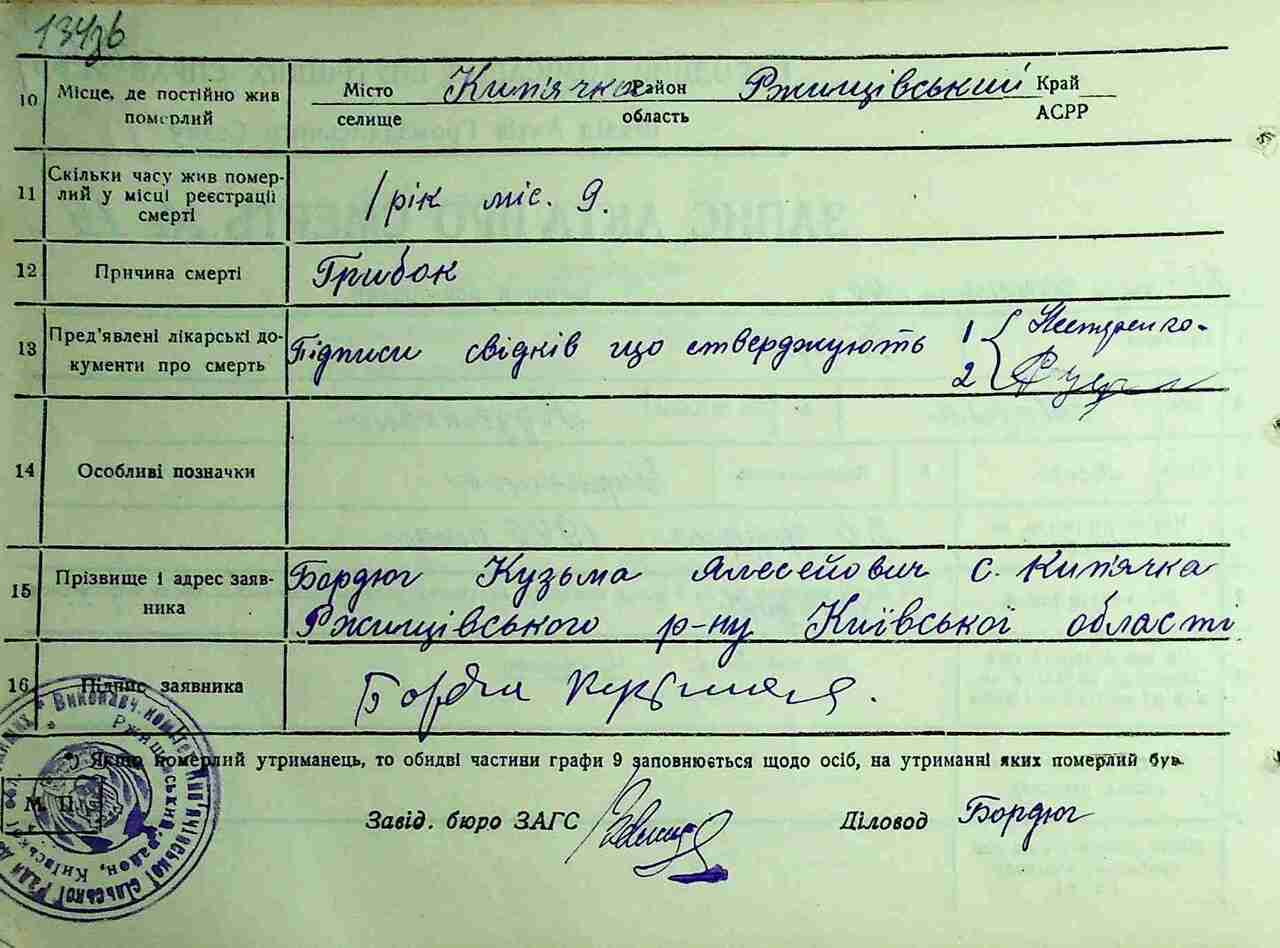 134зв
10 Місце, де постійно жив померлий
Місто селище Кип'ячка Район область Ржищівський Край АСРР
11 Скільки часу жив помер-
лий у місці реєстрації
смерті
1 рік міс. 9.
12 Причина смерті Грибок
13 Пред'явлені лікарські до-
кументи про смерть
Підписи свідків що стверджують 1 Нестеренко
2
14 Особливі позначки
15 Прізвище і адрес заяв-
ника
Бордюг Кузьма Ялесейович с. Кип'ячка
Ржищівського р-ну Київської області
16 Підпис заявника
Якщо померлий утриманець, то обидві частини графи 9 заповнюється щодо осіб, на утриманні яких померлий був
М. П.
Завід. бюро ЗАГС Діловод Бордюг
Виконавч. комітет Кип'ячківської сільської Ради
Ржищівський район, Київської